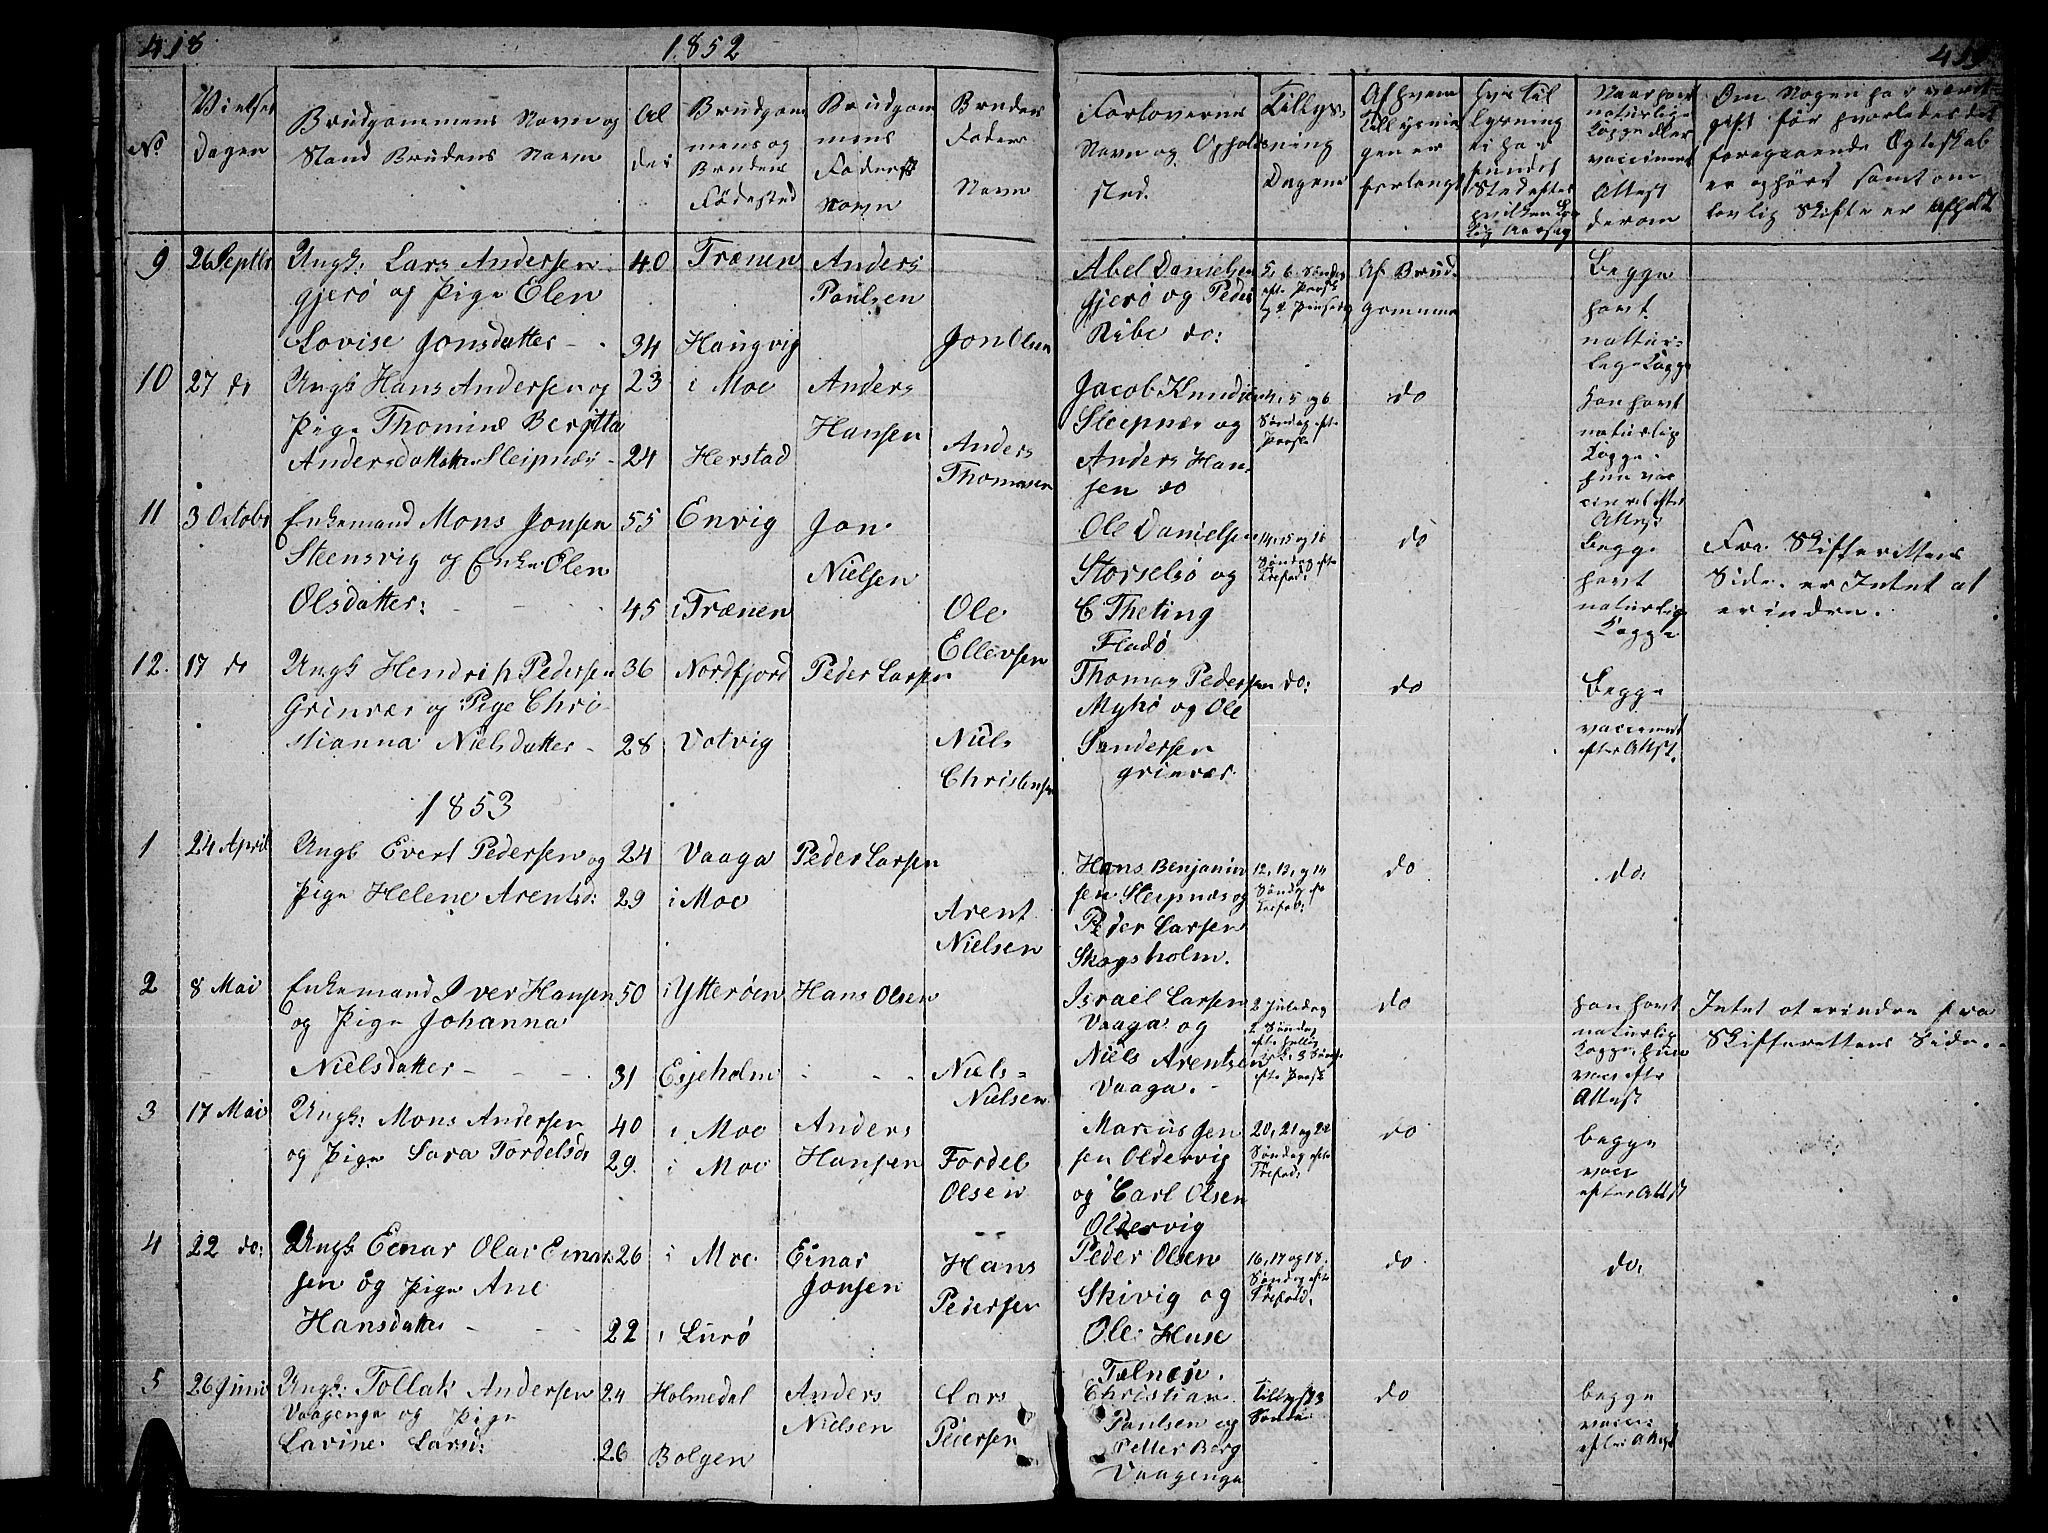 418
1852
419
No
Vielses
Dagen
Brudgommens Navn og
Stand Brudens Navn
Al
der
Brudgom
mens og
Brudens
Fødested
Brudgom
mens
Faders
Navn
Brudens
Faders
Navn
Forlovernes
Navn og Opholds
sted.
Tillys-
ning
Dagene
Af hvem
Tillysnin
gen er
forlangt
hvis Til
lysning
ei har
fundet
Sted efter
hvilken
Naar havt
naturlige
Kopper eller
vaccineret
Attest
derom
Om Nogen har været
gift før hvorledes det
foregaaende Ægteskab
er ophørt samt om
lovlig Skifte er afholdt
9
26 Septbr
Ungk: Lars Andersen
gjerø og Pige Elen
Lovise Jonsdatter -
40
34
Trænen
Haugvig
Anders
Paulsen
Jon Olsen
Abel Danielsen
gjerø og Peder
Ribe do:
5, 6 Søndag
efter Paask
og 2 Pinsedag
Af Brud-
gommen
Begge
havt
nattur-
lige Kopper
10
27 do
Ungk Hans Andersen og
Pige Thomine Beritta
Andersdatter Sleipnæs -
23
24
i Moe
Herstad
Anders
Hansen
Anders
Thomasen
Jacob Knudsen
Sleipnæs og
Anders Han
sen do
4, 5 og 6
Søndag efter
Paaske
do
han havt
naturlig
Kopper
hun vac
cineret efter
Attest
11
3 Octobr
Enkemand Mons Jonsen
Steensvig og Enke Elen
Olsdatter: - - -
55
45
Envig
i Trænen
Jon
Nielsen
Ole
Ellevsen
Ole Danielsen
Storselsø og
C Theting
Fladø
14, 15 og 16
Søndag efter
Trefold:
do
Begge
havt
naturlig
Kopper
Fra Skifterettens
Side er Intet at
erindre.
12.
17 do
Ungk Hendrik Pedersen
Grinvær og Pige Chri-
stianna Nielsdatter -
36
28
Nordfjord
Votvig
Peder Larsen
Niels
Christensen
Thomas Pedersen
Myhø og Ole
Sandersen
grinvær
do:
do
Begge
vaccineret
efter Attst.
1853
1
24 April
Ungk Evert Pedersen og
Pige Helene Arentsd:
24
29
Vaaga
i Moe
Peder Larsen
Arent
Nielsen
Hans Benjamin
sen Sleipnæs og
Peder Larsen
Skogsholm.
12, 13, og 14
Søndag ef
Trefol:
do
do.
2
8 Mai
Enkemand Iver Hansen
og Pige Johanna
Nielsdatter - - -
50
31
i Ytterøen
Esjeholm
Hans Olsen
Niels
Nielsen
Israel Larsen
Vaaga og
Niels Arentsen
Vaaga. -
2 Juledag
2 Søndag
do
han havt
naturlig
Kopper, hun
vacc efter
Attest
Intet at erindre fra
Skifterettens Side.
3
17 Mai
Ungk: Mons Andersen
og Pige Sara Tordelsd:
40
29.
i Moe
i Moe
Anders
Hansen
Fordel
Olsen
Marcus Jen
sen Oldervig
og Carl Olsen
Oldervig
20, 21 og 22
Søndag efter
Trefold:
do
begge
vacc
efter Attst
4
22 do:
Ungk Einar Olai Einar
sen og Pige Ane
Hansdatter - - -
26
22
i Moe
i Lurø
Einar
Jonsen
Hans
Pedersen
Peder Olsen
Skivig og
Ole Huse
Tælnæs.
16, 17 og 18.
Søndag efter
Trefold.
do
do.
5
26 Juni
Ungk: Tollak Andersen
Vaagenga og Pige
Lavine Larsd:
24
26
Holmedal
Bolgen
Anders
Nielsen
Lars
Pedersen
Christian
Paulsen og
Petter Borg
Vaagenga
Tillyst 3
do
begge
vacc:
efter Attest